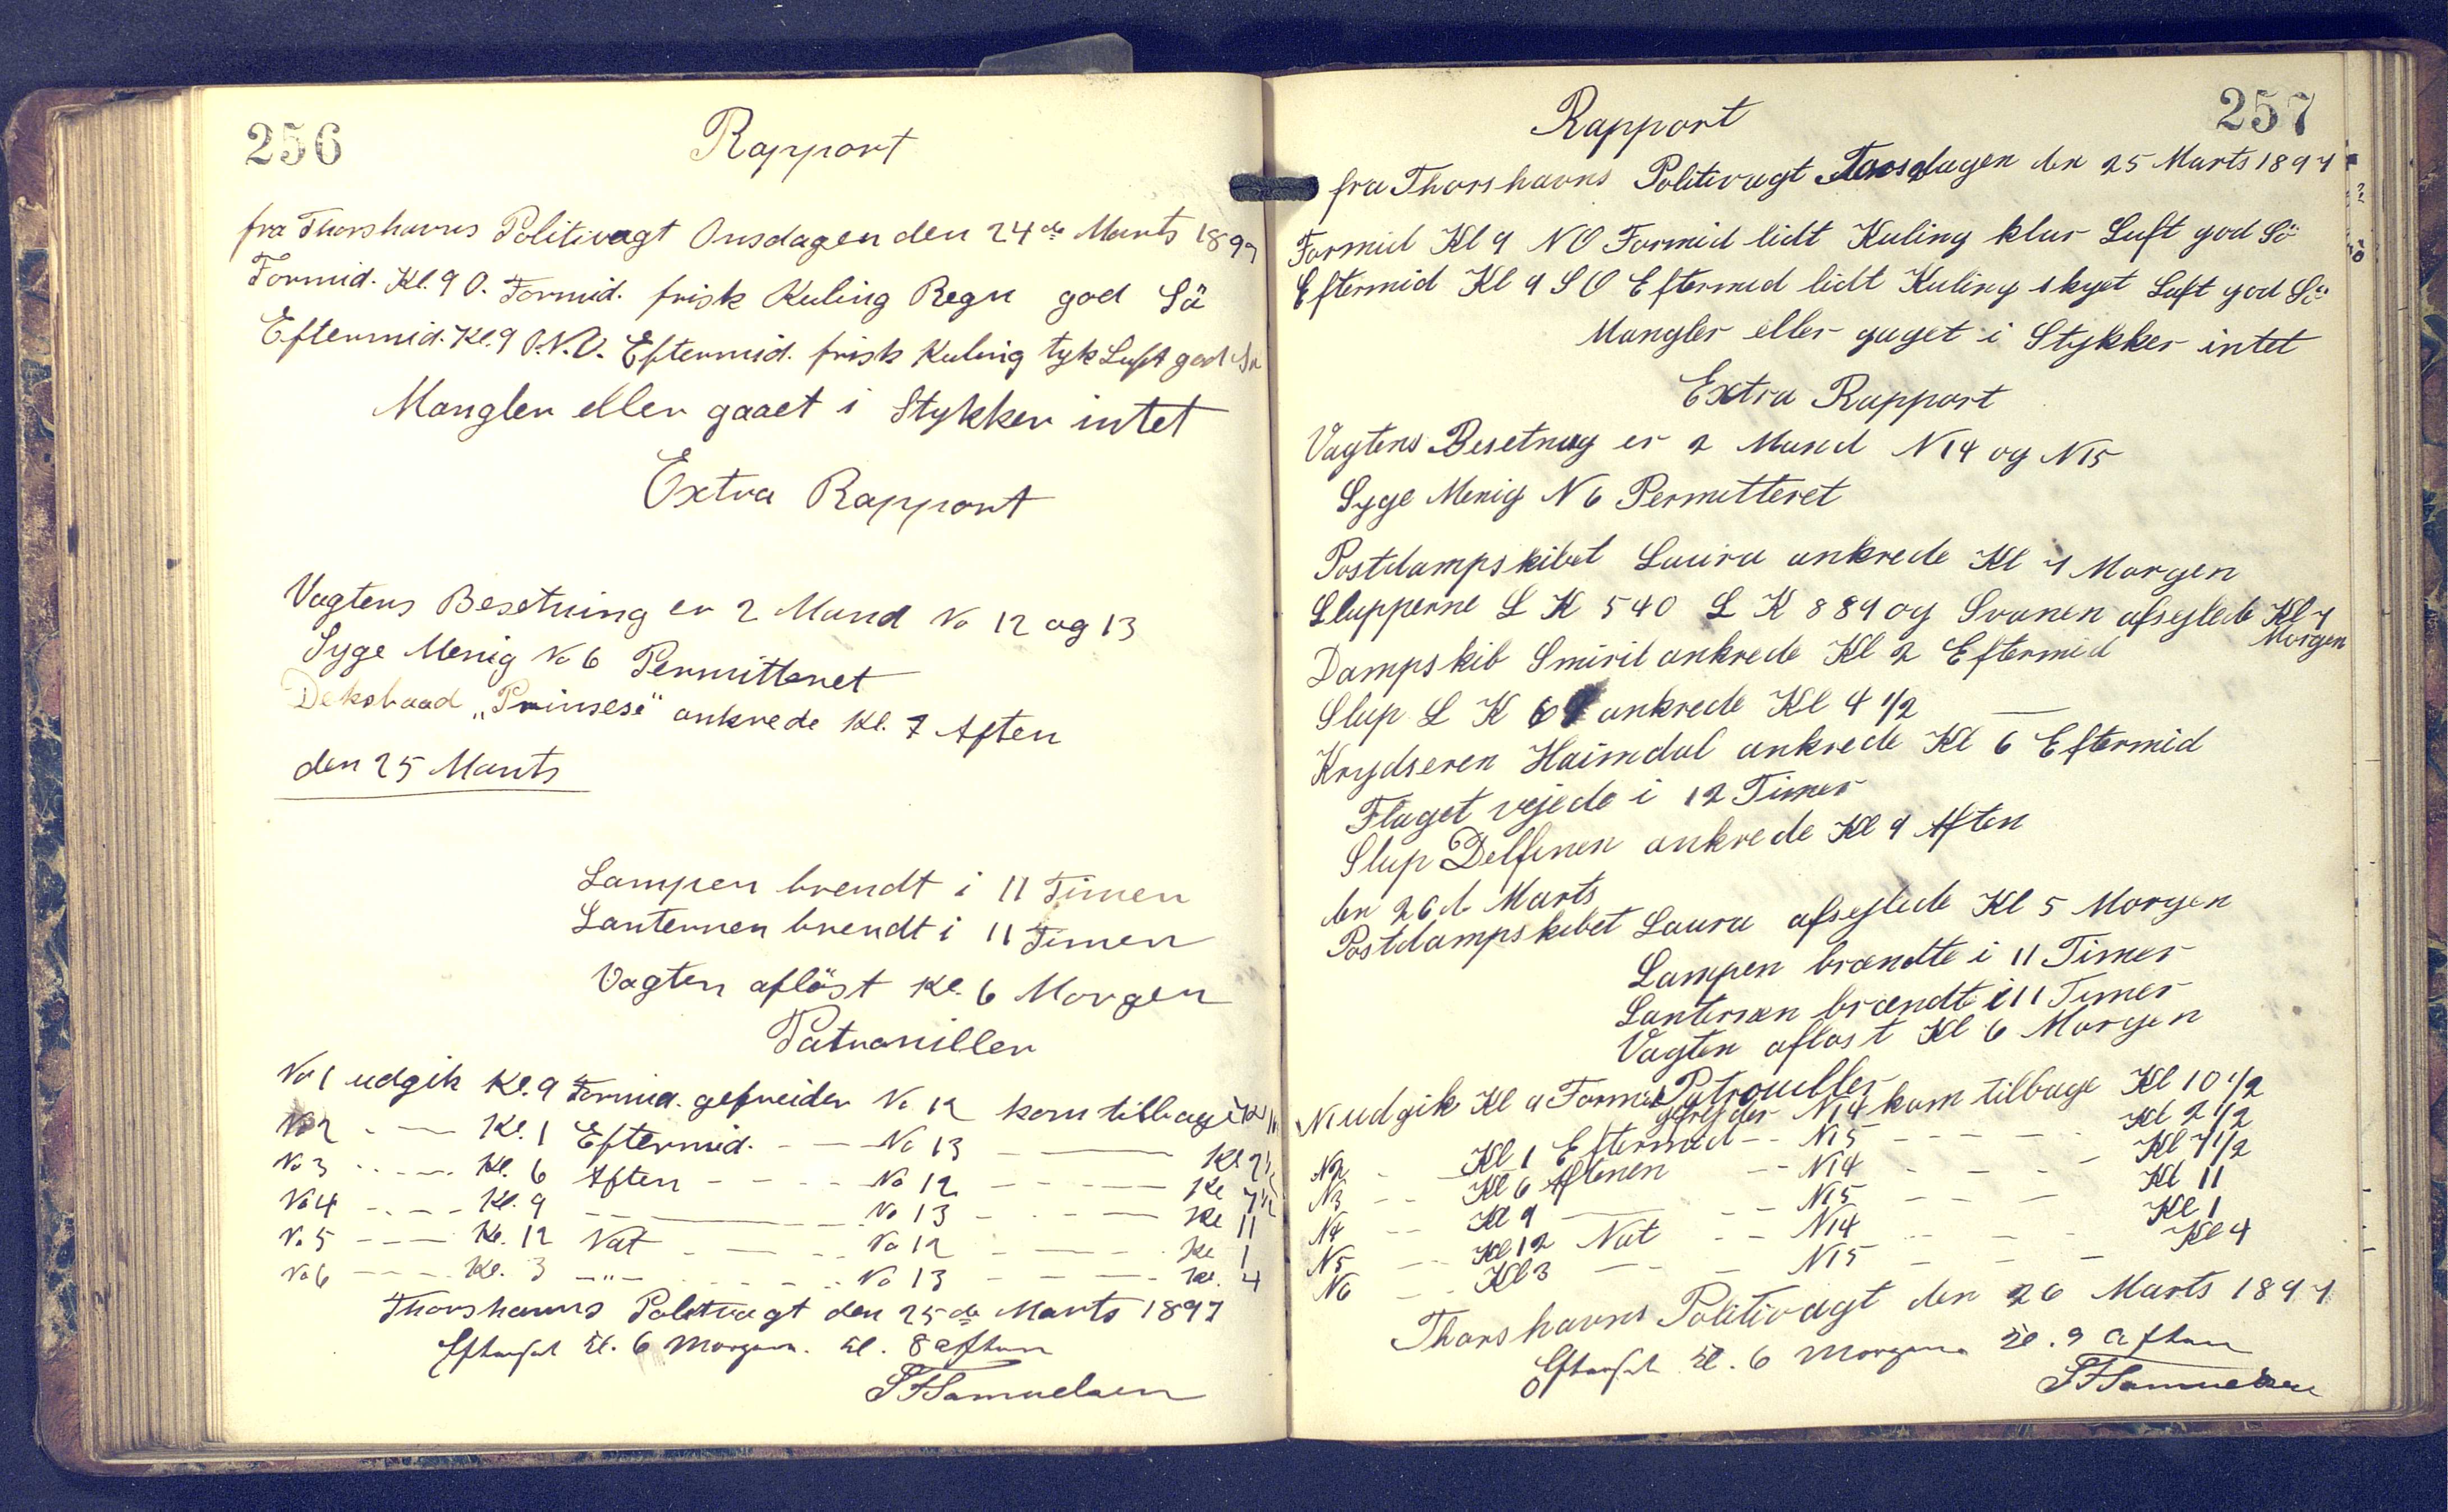 256
Rapport
fra Thorshavns Politivagt Onsdagen den 24de Marts 1897
Formid. Kl. 9 O. Formid. frisk Kuling Regn god Sö
Eftermid. Kl. 9 O.N.O. Eftermid. frisk Kuling tyk Luft god Sö
Mangler eller gaaet i Stykker intet
Extra Rapport
Vagtens Besetning er 2 Mand No 12 og 13
Syge Menig No 6 Permitteret
Deksbaad „Prinsese" ankrede Kl. 7 Aften
den 25 Marts
Lampen brendt i 11 Timer
Lanternen brendt i 11 Timer
Vagten aflöst Kl. 6 Morgen
Patrouiller
No 1 udgik Kl. 9 Formid. gefreider No 12 kom tilbage Kl 11
No 2 - — Kl. 1 Eftermid. - — No 13 — Kl 2½
No 3 - - — Kl. 6 Aften - - - No 12 - - - Kl 7½
No 4 - - - Kl. 9 — No 13 - - — Kl 11
No 5 - — Kl. 12 Nat - — - No 12 - — - Kl 1
No 6 - — Kl. 3 —"— - - - No 13 - - — Kl. 4
Thorshavns Politvagt den 25de Marts 1897
Efterset Kl. 6 Morgen. Kl. 8 Aften
SFSamuelsen
257
Rapport
fra Thorshavns Politivagt Torsdagen den 25 Marts 1897
Formid Kl 9 NO Formid lidt Kuling klar Luft god Sö
Eftermid Kl 9 SO Eftermid lidt Kuling skyet Luft god Sö
Mangler eller gaget i Stykker intet
Extra Rapport
Vagtens Besetnug er 2 Mand N14 og N15
Syge Menig N 6 Permitteret
Postdampskibet Laura ankrede Kl 7 Morgen
Slupperne L K 540 L K 889 og Svanen afseglede Kl 7
Morgen
Dampskib Smiril ankrede Kl 2 Eftermid
Slup L K ankrede Kl 4 1/2 —
Krydseren Haimdal ankrede Kl 6 Eftermid
Flaget vejede i 12 Timer
Slup Delfinen ankrede Kl 9 Aften
den 26d Marts
Postdampskibet Laura afseglede Kl 5 Morgen
Lampen brændte i 11 Timer
Lanternen brændte i 11 Timer
Vagten aflöst Kl 6 Morgen
Patrouiller
N1 udgik Kl 9 Formid gefreider N14 kom tilbage Kl 10 1/2
N2 - Kl 1 Eftermid - - N15 - - - - Kl 2 1/2
N3 - - Kl 6 Aftenen - - N14 - - - - Kl 7 1/2
N4 - - Kl 9 — - - N15 - - - Kl 11
N5 - - Kl 12 Nat - - N14 - - - Kl 1
N6 - - Kl 3 - - - N15 - - - Kl 4
Thorshavns Politivagt den 26 Marts 1897
Efterset Kl. 6 Morgen Kl. 9 Aften
SFSamuelsen